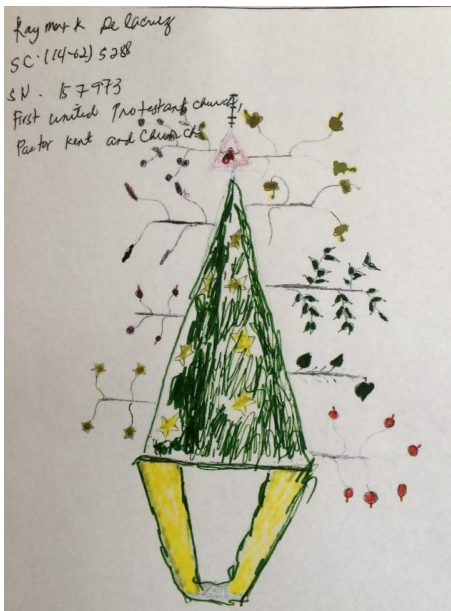 Raymark Delacruz
SC. (14-62) 5288
SN. 157973
First united Protestant church,
Pastor Kent and Church